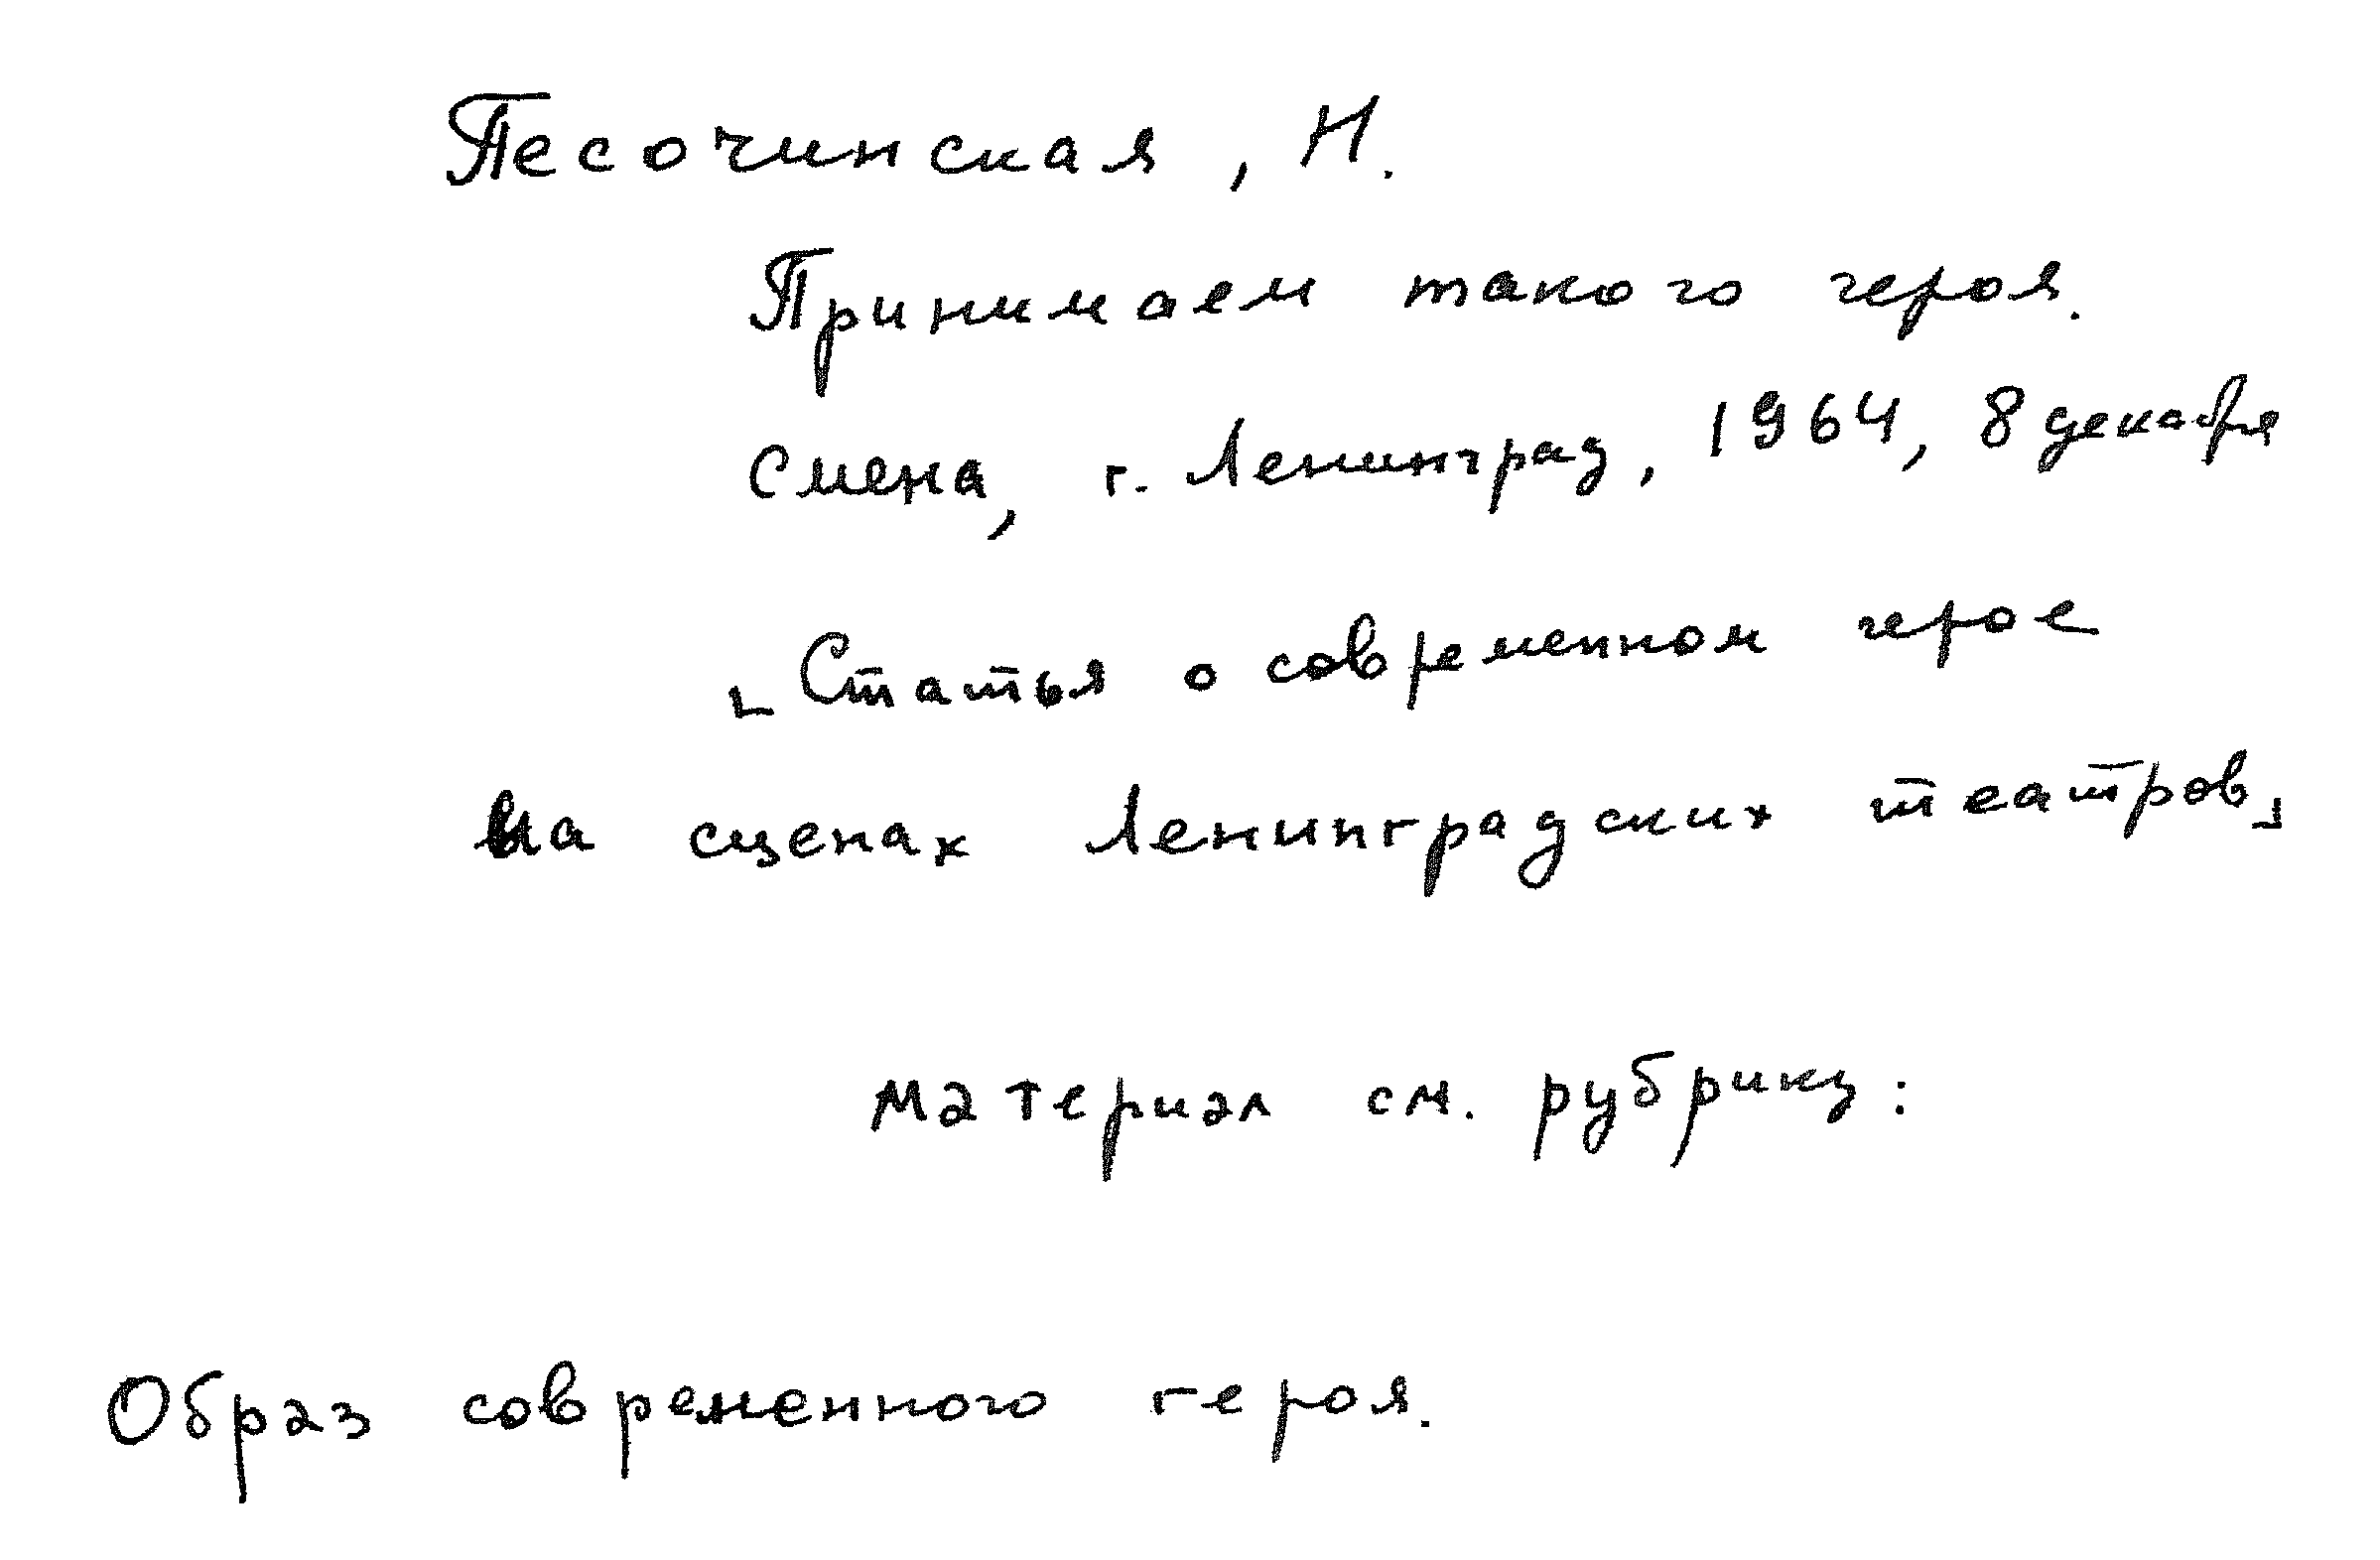 Песочинская, Н.
Принимаем такого героя.
Смена, г. Ленинград, 1964, 8 декабря
[Статья о современном герое
на сценах Ленинградских театров]
Материал см. рубрику:
Образ современного героя.